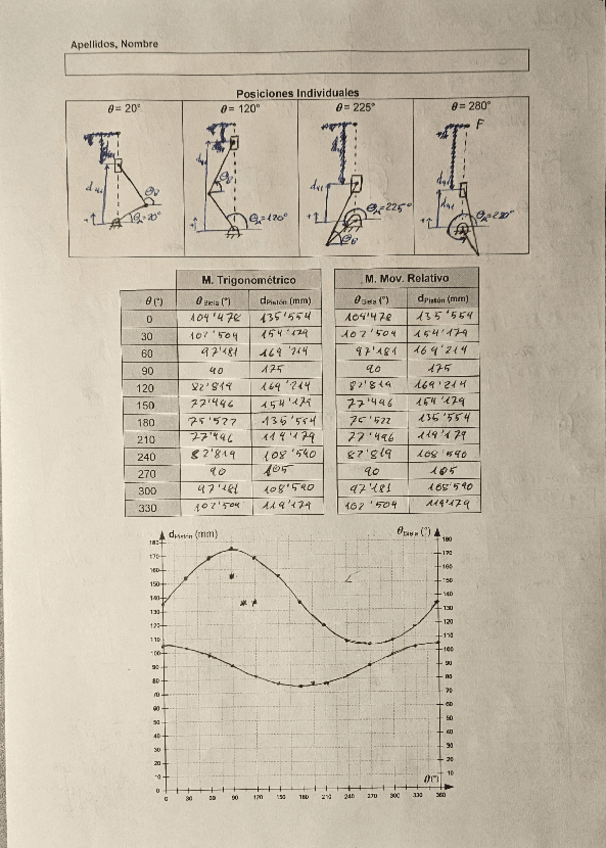 Apellidos, Nombre
Posiciones Individuales
θ = 20° θ = 120° θ = 225° θ = 280°
F
θ₂=20° θ₂=120° θ₂=225° θ₂=280°
M. Trigonométrico M. Mov. Relativo
θ (°) θ Biela (°) dPistón (mm) θ Biela (°) dPistón (mm)
0 104'478 135'554 104'478 135'554
30 102'504 154'179 102'504 154'179
60 97'181 169'214 97'181 169'214
90 90 175 90 175
120 82'819 169'214 82'819 169'214
150 77'496 154'179 77'496 154'179
180 75'522 135'554 75'522 135'554
210 77'496 119'179 77'496 119'179
240 82'819 108'590 82'819 108'590
270 90 105 90 105
300 97'181 108'590 97'181 108'590
330 102'504 119'179 102'504 119'179
dPistón (mm) θ Biela (°)
180 180
170 170
160 160
150 150
140 140
130 130
120 120
110 110
100 100
90 90
80 80
70 70
60 60
50 50
40 40
30 30
20 20
10 10
0 θ(°)
0 30 60 90 120 150 180 210 240 270 300 330 360